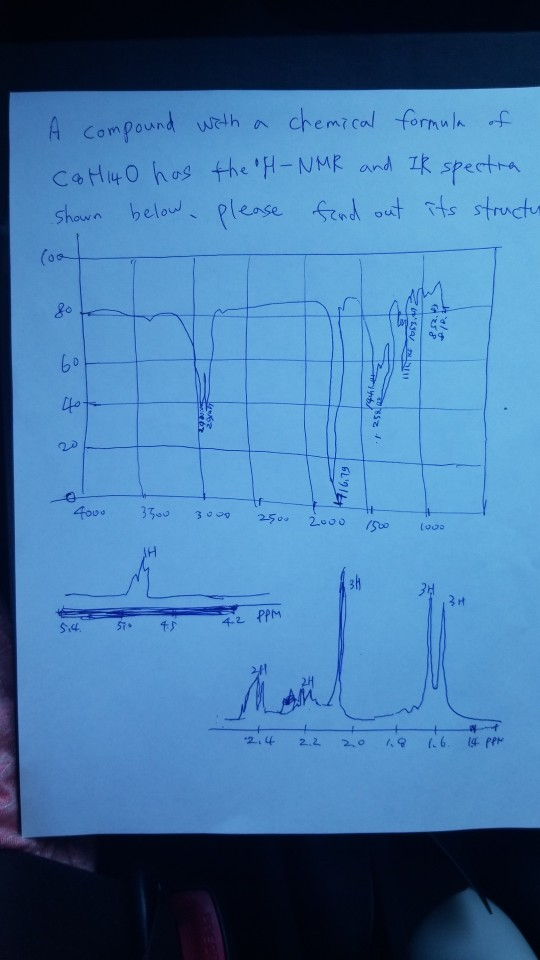 A compound with a chemical formula of
C8H14O has the ¹H-NMR and IR spectra
shown below, please find out its structu
100
80
60
40
20
0
1716.79
4000 3500 3000 2500 2000 1500 1000
1H
5.4 5.0 4.5 4.2 PPM
3H
3H 3H
2H 2H
2.4 2.2 2.0 1.8 1.6 1.4 PPM